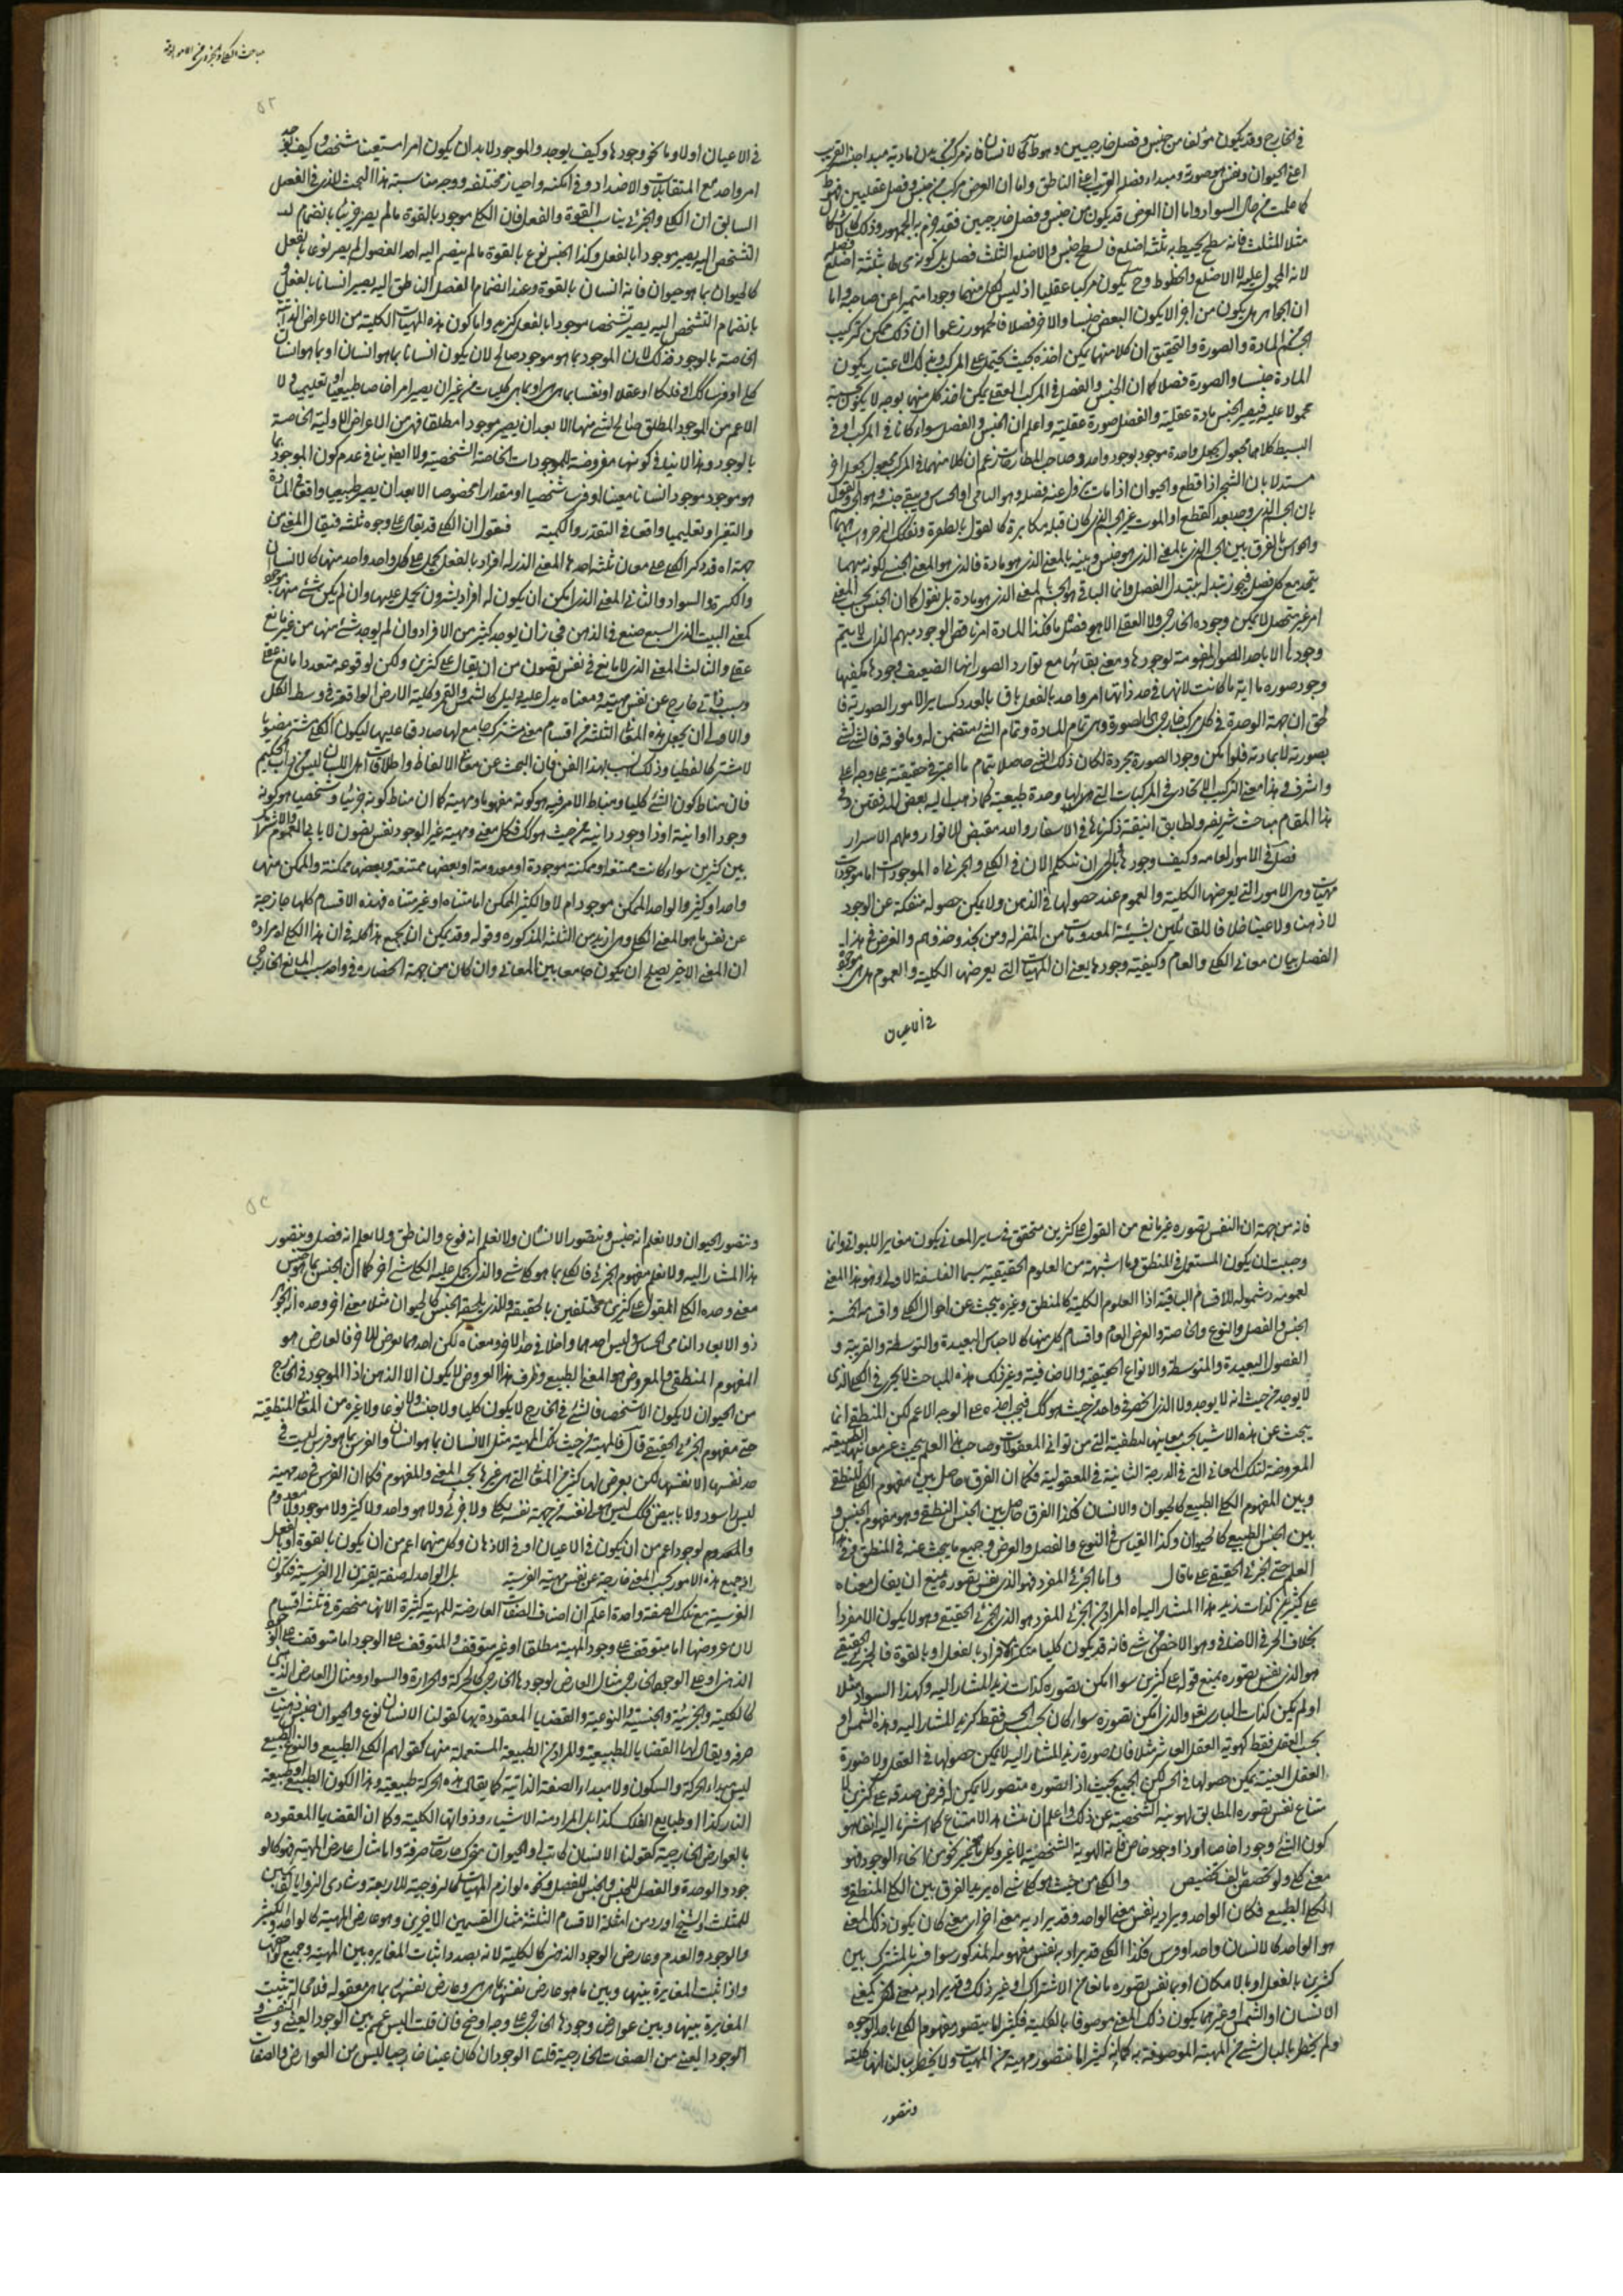 في الخارج وقد يكون مؤلفا من جنس وفصل خارجيين وهو ظ كالانسان فانه مركب من بدن مادته مبدا جنسه القريب
اعني الحيوان ونفس هو صورته ومبداء فصله القريب اعني الناطق واما ان العرض مركب من جنس وفصل عقليين فهو ظ
كما علمت من حال السواد واما ان العرض قد يكون من جنس وفصل خارجيين فقد جزم به الجمهور وذلك كالاشكال
مثلا المثلث فانه سطح يحيط به ثلثة اضلع فالسطح جنس والاضلاع الثلث فصل بل كونه محاطا بثلثة اضلع
لانه المحمول عليه لا الاضلع والخطوط وح يكون مركبا عقليا اذ ليس لكل منهما وجود متميز عن صاحبه واما
ان الجواهر هل يكون من اجزاء يكون البعض جنسا والاخر فصلا فالجمهور زعموا ان ذلك ممكن كتركيب
الجسم من المادة والصورة والتحقيق ان كلا منهما يمكن اخذه بحيث يحتمل على المركب وبذلك الاعتبار يكون
المادة جنسا والصورة فصلا كما ان الجنس والفصل في المركب العقلي يمكن اخذ كل منهما بوجه لا يكون بحسبه
محمولا عليه فيصير الجنس مادة عقلية والفصل صورة عقلية واعلم ان الجنس والفصل سواء كانا في المركب او في
البسيط كلاهما مجعول بجعل واحد موجود بوجود واحد وصاحب المطارحات زعم ان كلا منهما في المركب مجعول بجعل اخر
مستدلا بان الشجر اذا قطع والحيوان اذا مات يزول عنه فصله وهو النامي او الحساس ويبقى جنسه وهو الجسم والقول
بان الجسم الذي وجد بعد القطع او الموت غير الجسم الذي كان قبله مكابرة كالقول بالطفرة وتفكك الرحى
والجواب بالفرق بين الجسم الذي بالمعنى الذي هو جنس وبينه بالمعنى الذي هو مادة فالذي هو المعنى الجنسي لكونه مبهما
يتحد مع كل فصل فيجوز تبدله بتبدل الفصل وانما الباقي هو الجسم بالمعنى الذي هو مادة بل نقول كما ان الجنس بحسب المعنى
امر غير متحصل لا يمكن وجوده الخارجي ولا العقلي الا بفصل ما فكذا المادة امر ناقص الوجود مبهم الذات لا يتم
وجودها الا باحد الصور المقومة لوجودها ومعنى بقائها مع توارد الصور انها لضعف وجودها يكفيها
وجود صورة ما اية ما كانت لانها في حد ذاتها امر واحد بالفعل باق بالعدد كساير الامور الصورية فا
لحق ان جهة الوحدة في كل مركب خارجي هي الصورة وهي تمام للمادة وتمام الشيء متضمن له وما فوقه فالشيء شيء
بصورته لا بمادته فلو امكن وجود الصورة مجردة لكان ذلك الشيء حاصلا بتمام ما اعتبر في حقيقته على وجه اعلى
واشرف وهذا معنى التركيب الاتحادي في المركبات التي لها وحدة طبيعية كما ذهب اليه بعض المدققين وفي
هذا المقام مباحث شريفة ولطايف انيقة ذكرناها في الاسفار والله مفيض الانوار وملهم الاسرار
فصل في الامور العامة وكيف وجودها بالحري ان نتكلم الان في الكلي والجزئي اه الموجودات اما موجودات
مهيات وهي الامور التي يعرضها الكلية والعموم عند حصولها في الذهن ولا يمكن حصوله منفكة عن الوجود
لا ذهنا ولا عينا خلافا للقائلين بشيئية المعدومات من المعتزلة ومن يحذو حذوهم والغرض في هذا
الفصل بيان معاني الكلي والعام وكيفية وجودها يعني ان المهيات التي يعرضها الكلية والعموم هل هي موجودة
في الاعيان
مباحث الكلي والجزئي من الامور العامة
٥٢
في الاعيان اولا وما نحو وجودها وكيف يوجد والموجود لا بد ان يكون امرا متعينا متشخصا وكيف يوجد
امر واحد مع المتقابلات والاضداد وفي امكنة واحياز مختلفة ووجه مناسبة هذا البحث للذي في الفصل
السابق ان الكلي والجزئي يناسب القوة والفعل فان الكلي موجود بالقوة ما لم يصر جزئيا بانضمام
التشخص اليه يصير موجودا بالفعل وكذا الجنس نوع بالقوة ما لم ينضم اليه احد الفصول لم يصر نوعا بالفعل
كالحيوان بما هو حيوان فانه انسان بالقوة وعند انضمام الفصل الناطق اليه يصير انسانا بالفعل و
بانضمام التشخص اليه يصير متشخصا موجودا بالفعل كزيد واما كون هذه المهيات الكلية من الاعراض الذاتية
الخاصة بالوجود فذلك لان الموجود بما هو موجود صالح لان يكون انسانا بما هو انسان او بما هو انسان
كلي او فرسا كك او فلكا او عقلا او نفسا بما هي هي او بما هي كليات من غير ان يصير امرا خاصا طبيعيا او تعليميا ولا
الاعم من الموجود المطلق صالح لشيء منها الا بعد ان يصير موجودا مطلقا فهي من الاعراض الاولية الخاصة
بالوجود وهذا لا ينافي كونها مفروضة للموجودات الخاصة الشخصية ولا ايضا ينافي عدم كون الموجود بما
هو موجود موجودا انسانا معينا او فرسا شخصيا او مقدارا مخصوصا الا بعد ان يصير طبيعيا واقعا في المادة
والتغير او تعليميا واقعا في التقدر والكمية فنقول ان الكلي قد يقال على وجوه ثلثة فيقال للمعنى من
جهة اه قد ذكر الكلي على معان ثلثة احدها المعنى الذي له افراد بالفعل يحمل على كل واحد واحد منها كالانسان
والكرة والسواد والثاني المعنى الذي امكن ان يكون له افراد كثيرون يحمل عليها وان لم يكن شيء منها موجودا
كمعنى البيت المسبع صنع في الذهن في زمان يوجد كثير من الافراد وان لم يوجد شيء منها من غير مانع
عقلي والثالث المعنى الذي لا مانع في نفس تصوره من ان يقال على كثيرين ولكن لو وقوعه متعددا مانع عقلي
وسبب ذاتي خارج عن نفس مهيته ومعناه يدل عليه دليل كالشمس والقمر وكلية الارض الواقعة في وسط الكل
والاولى ان يجعل هذه المعاني الثلثة من اقسام معنى مشترك جامع لها صادقا عليها ليكون الكلي مشتركا معنويا
لا مشتركا لفظيا وذلك انسب بهذا الفن فان البحث عن معاني الالفاظ واطلاقات اهل اللسان ليس من داب الحكيم
فان مناط كون الشيء كليا ومناط الامر فيه هو كونه مفهوما ومهية كما ان مناط كونه جزئيا وشخصيا هو كونه
وجودا او انية او ذا وجود وانية من حيث هو كك فكل معنى ومهية غير الوجود نفس تصوره لا يابى العموم والاشتراك
بين كثيرين سواء كانت ممتنعة او ممكنة موجودة او معدومة او بعضها ممتنعة وبعضها ممكنة والممكن منها
واحد او كثير والواحد الممكن موجود ام لا والكثير الممكن اما متناه او غير متناه فهذه الاقسام كلها خارجة
عن نفس ما هو المعنى الكلي وهي ازيد من الثلثة المذكورة وقوله وقد يمكن ان يجمع هذا كله في ان هذا الكلي اه مراده
ان المعنى الاخير يصلح ان يكون جامعا بين المعاني وان كان من جهة انحصاره في واحد بسبب المانع الخارجي
فانه من جهة ان النفس تصوره غير مانع من القول على كثيرين متحقق في ساير المعاني يكون مغايرا للبواقي وانما
وجب ان يكون المستعمل في المنطق وما اشبهه من العلوم الحقيقية سيما الفلسفة الاولى هو هذا المعنى
لعمومه وشموله للاقسام الباقية اذ العلوم الكلية كالمنطق وغيره يبحث عن احوال الكلي واقسامه الخمسة
الجنس والفصل والنوع والخاصة والعرض العام واقسام كل منها كالاجناس البعيدة والمتوسطة والقريبة و
الفصول البعيدة والمتوسطة والانواع الحقيقية والاضافية وغير ذلك هذه المباحث لا يجري في الكلي الذي
لا يوجد من حيث انه لا يوجد ولا الذي انحصر في واحد من حيث هو كك فيجب اخذه على الوجه الاعم لكن المنطقي انما
يبحث عن هذه الاشياء بحسب معانيها المنطقية التي من ثواني المعقولات وصاحب هذا العلم يبحث عن معانيها الطبيعية
المعروضة لتلك المعاني التي في الدرجة الثانية في المعقولية فكما ان الفرق حاصل بين مفهوم الكلي المنطقي
وبين المفهوم الكلي الطبيعي كالحيوان والانسان فكذا الفرق حاصل بين الجنس المنطقي وهو مفهوم الجنس و
بين الجنس الطبيعي كالحيوان وكذا القياس في النوع والفصل والعرض وجميع ما يبحث عنه في المنطق وفي هذا
العلم حتى الجزئي الحقيقي على ما قال واما الجزئي المفرد فهو الذي نفس تصوره يمنع ان يقال معناه
على كثيرين كذات زيد هذا المشار اليه اه المراد من الجزئي المفرد هو الجزئي الحقيقي وهو لا يكون الا مفردا
بخلاف الجزئي الاضافي وهو الاخص من شيء فانه قد يكون كليا متكثرة الافراد بالفعل او بالقوة فالجزئي الحقيقي
هو الذي نفس تصوره يمنع قوله على كثيرين سواء امكن تصوره كذات زيد المشار اليه وكهذا السواد مثلا
او لم يكن كذات الباري تع والذي امكن تصوره سواء كان بحسب الحس فقط كزيد المشار اليه وهذه الشمس او
بحسب العقل فقط كهوية العقل العاشر مثلا فان صورة زيد المشار اليه لا يمكن حصولها في العقل ولا صورة
العقل العينية يمكن حصولها في الحس لكن الجميع بحيث اذا تصوره متصور لا يمكن له فرض صدقه على كثيرين لا
متناع نفس تصوره المطابق لهويته الشخصية عن ذلك واعلم ان منشاء هذا الامتناع كما اشرنا اليه انما هو
كون الشيء وجودا خاصا او ذا وجود خاص فان الهوية الشخصية لا غير وكل ما هو غير نحو من انحاء الوجود فهو
معنى كلي ولو تخصص بالف تخصيص والكلي من حيث هو كلي شيء اه يريد الفرق بين الكلي المنطقي و
الكلي الطبيعي فكان الواحد ويراد به نفس معنى الواحد وقد يراد به معنى اخر اي معنى كان يكون ذلك المعنى
هو الواحد كالانسان واحدا وفرس فكذا الكلي قد يراد به نفس مفهومه المذكور سواء فسر بالمشترك بين
كثيرين بالفعل او بالامكان او بما نفس تصوره مانعا من الاشتراك او غير ذلك وقد يراد به معنى اخر كمعنى
الانسان او الشمس او غيرهما يكون ذلك المعنى موصوفا بالكلية فكثيرا ما يتصور مفهوم الكلي باحد الوجوه
ولم يخطر بالبال شيء من المهية الموصوفة به كما انه كثيرا ما نتصور مهية من المهيات ولا يخطر ببالنا انها كلية
ونتصور
ونتصور الحيوان ولا نعلم انه جنس ونتصور الانسان ولا نعلم انه نوع والناطق ولا نعلم انه فصل ونتصور
هذا المشار اليه ولا نعلم مفهوم الجزئي فالكلي بما هو كلي شيء والذي يحمل عليه الكلي شيء اخر كما ان الجنس بما هو جنس
معنى وحده الكلي المقول على كثيرين مختلفين بالحقيقة والذي يلحقه الجنس كالحيوان مثلا معنى اخر وحده انه الجوهر
ذو الابعاد النامي الحساس وليس احدهما داخلا في حد الاخر ومعناه لكن احدهما يعرض للاخر فالعارض هو
المفهوم المنطقي والمعروض هو المعنى الطبيعي وظرف هذا العروض لا يكون الا الذهن اذ الموجود في الخارج
من الحيوان لا يكون الا شخصا فالشيء في الخارج لا يكون كليا ولا جنسا ولا نوعا ولا غيره من المعاني المنطقية
حتى مفهوم الجزئي الحقيقي قال فالمهية من حيث تلك المهية مثل الانسان بما هو انسان والفرس بما هو فرس ليست في
حد نفسها الا نفسها لكن يعرض لها كثير من المعاني التي هي غيرها بحسب المعنى والمفهوم فكما ان الفرس في حد مهيته
ليس اسود ولا بابيض فكك ليس هو في نفسه من جهة نفسه بكلي ولا جزئي ولا هو واحد ولا كثير ولا موجود ولا معدوم
والمعدوم لوجود اعم من ان يكون في الاعيان او في الاذهان وكل منهما اعم من ان يكون بالقوة او بالفعل
اذ جميع هذه الامور بحسب المعنى خارجة عن نفس مهية الفرسية بل الواحدية صفة يقترن الى الفرسية فتكون
الفرسية مع تلك الصفة واحدة اعلم ان اصناف الصفات العارضة للمهية كثيرة الا انها منحصرة في ثلثة اقسام
لان عروضها اما متوقف على وجود المهية مطلقا او غير متوقف والمتوقف على الوجود اما متوقف على الوجود
الذهني او على الوجود الخارجي مثال العارض لوجودها الخارجي كالحركة والحرارة والسواد ومثال العارض الذهني
كالكلية والجزئية والجنسية والنوعية والقضايا المعقودة بها كقولنا الانسان نوع والحيوان جنس ذهنيات
صرفة ويقال لها القضايا الطبيعية والمراد من الطبيعة المستعملة منها كقولهم الكلي الطبيعي والنوع الطبيعي
ليس مبداء الحركة والسكون ولا مبداء الصفة الذاتية كما يقال هذه الحركة طبيعية وهذا الكون الطبيعي او طبيعة
النار كذا او طبايع الفلك كذا بل المراد منه الاشياء وذواتها الكلية وكما ان القضايا المعقودة
بالعوارض الخارجية كقولنا الانسان كاتب او الحيوان متحرك خارجيات صرفة واما مثال عارض المهية فهو كالو
جود والوحدة والفصل للجنس والجنس للفصل ونحو لوازم المهيات كالزوجية للاربعة وتساوي الزوايا لقائمتين
للمثلث والشيخ اورد من امثلة الاقسام الثلثة مثال القسمين الاخيرين وهو عارض المهية كالواحد والكثير
والوجود والعدم وعارض الوجود الذهني كالكلية لانه بصدد اثبات المغايرة بين المهية وجميع لواحقها
واذا ثبت المغايرة بينها وبين ما هو عارض نفسها بما هي هي وعارض نفسها بما هي معقوله فلا محالة يثبت
المغايرة بينها وبين عوارض وجودها الخارجي على وجه اوضح فان قلت اليس عم بين الوجود العيني والذهني و
الوجود العيني من الصفات الخارجية قلنا الوجود ان كان عينيا خارجيا ليس من العوارض والصفا